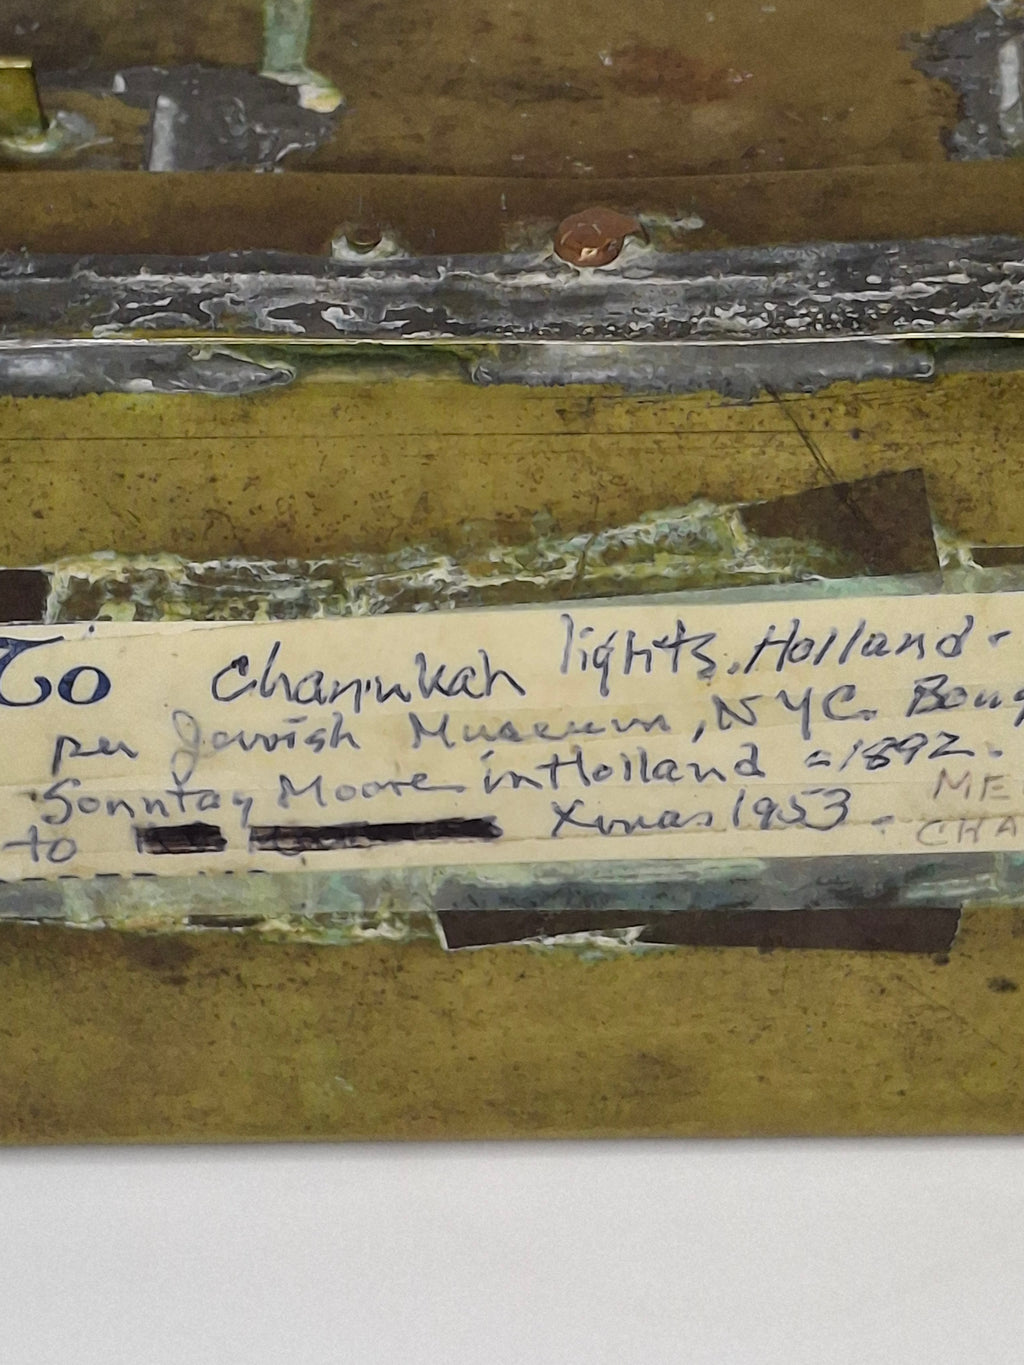 To Chanukah lights. Holland -
per Jewish Museum, NYC. Boug
Sonntag Moore in Holland = 1892.
to Xmas 1953. -
ME
CHA